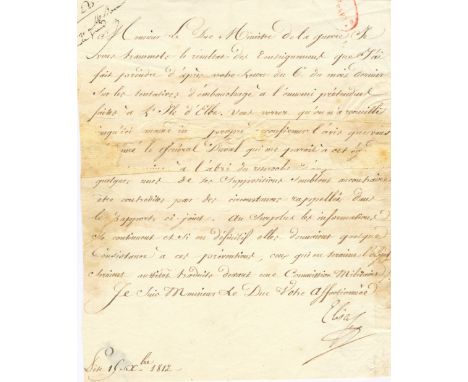 Monsieur Le Duc Ministre de la guerre, Je
vous transmets le résultat des Enseignemens que J'ai
fait prendre d'après votre lettre du 6 du mois dernier
Sur les tentatives d'embauchage à l'ennemi prétendues
faites à L'Ile d'Elbe. Vous verrez qu'on n'a recueilli
confirmer l'avis que vous
le Général Duval qui me paraît à cet
à l'abri du reproche
quelques unes de ses Suppositions Semblent au contraire
être contredites par des circonstances rappellées dans
le Rapport ci-joint. Au Surplus les informations
Se continuent et Si en définitif elles donnaient quelque
Consistance à ces préventions, ceux qui en seraient l'objet
Seraient aussitôt traduits devant une Commission Militaire.
Je Suis Monsieur Le Duc Votre Affectionnée
Elisa
15 Xbre 1812